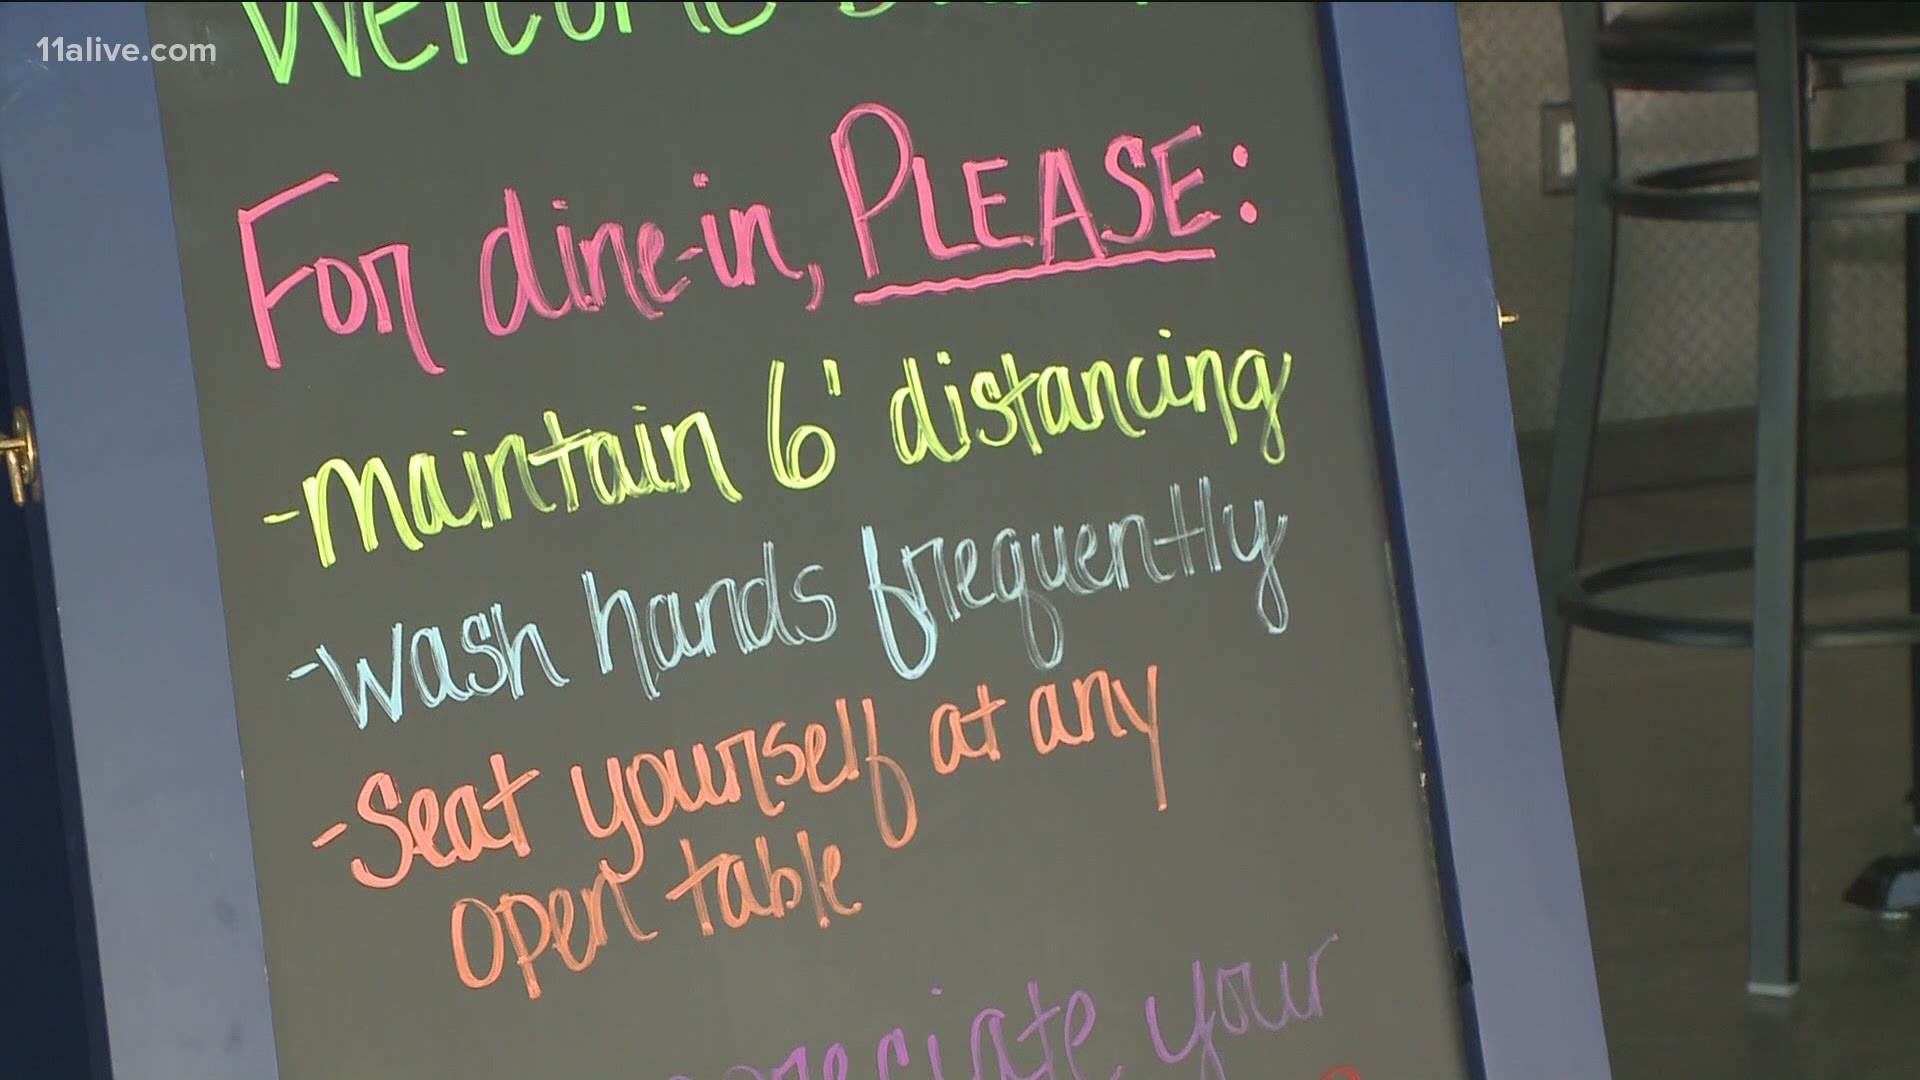 11alive.com
Welcome
For dine-in, PLEASE:
-maintain 6' distancing
-wash hands frequently
-Seat yourself at any
open table
your